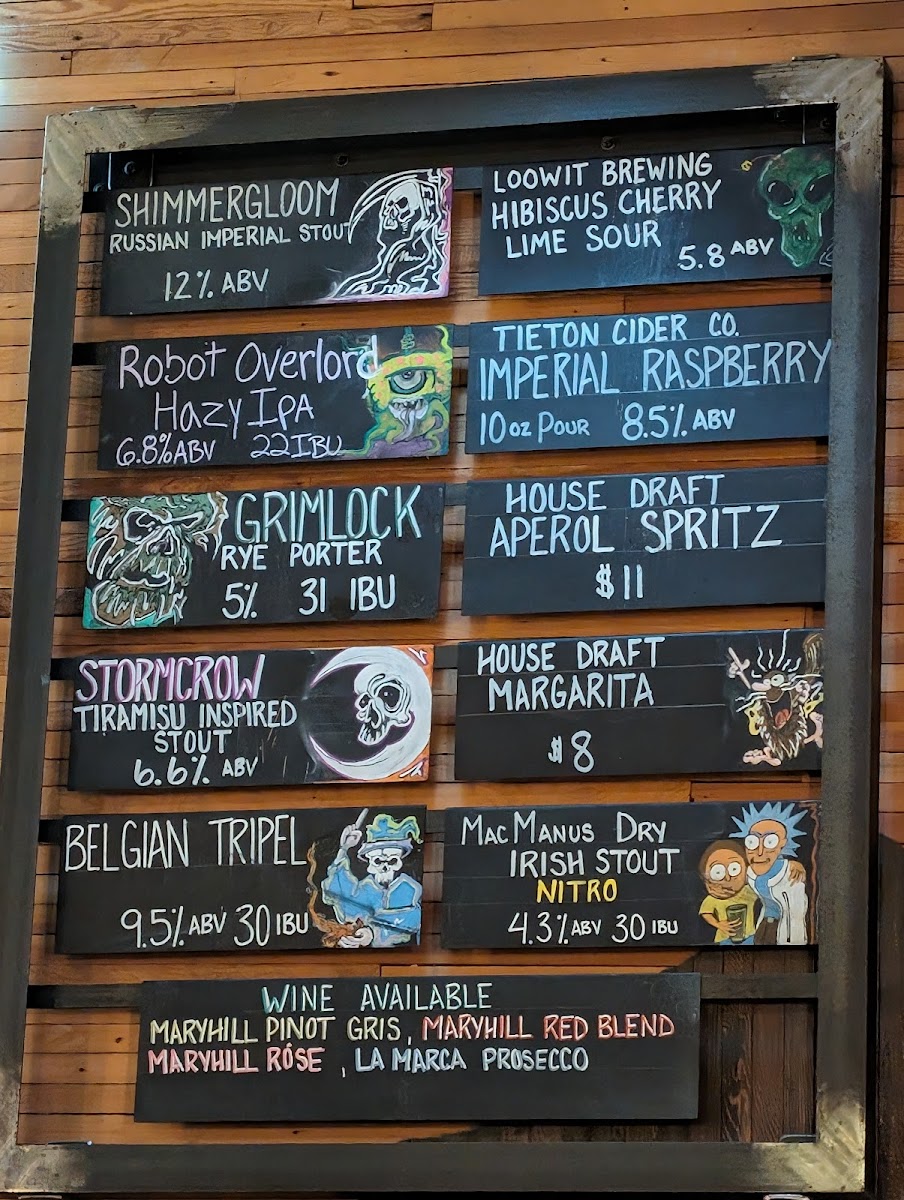 SHIMMERGLOOM
RUSSIAN IMPERIAL STOUT
12% ABV
Robot Overlord
Hazy IPA
6.8% ABV 22 IBU
GRIMLOCK
RYE PORTER
5% 31 IBU
STORMCROW
TIRAMISU INSPIRED
STOUT
6.6% ABV
BELGIAN TRIPEL
9.5% ABV 30 IBU
LOOWIT BREWING
HIBISCUS CHERRY
LIME SOUR
5.8 ABV
TIETON CIDER CO.
IMPERIAL RASPBERRY
10 OZ POUR 8.5% ABV
HOUSE DRAFT
APEROL SPRITZ
$11
HOUSE DRAFT
MARGARITA
$8
MAC MANUS DRY
IRISH STOUT
NITRO
4.3% ABV 30 IBU
WINE AVAILABLE
MARYHILL PINOT GRIS, MARYHILL RED BLEND
MARYHILL RÓSE, LA MARCA PROSECCO